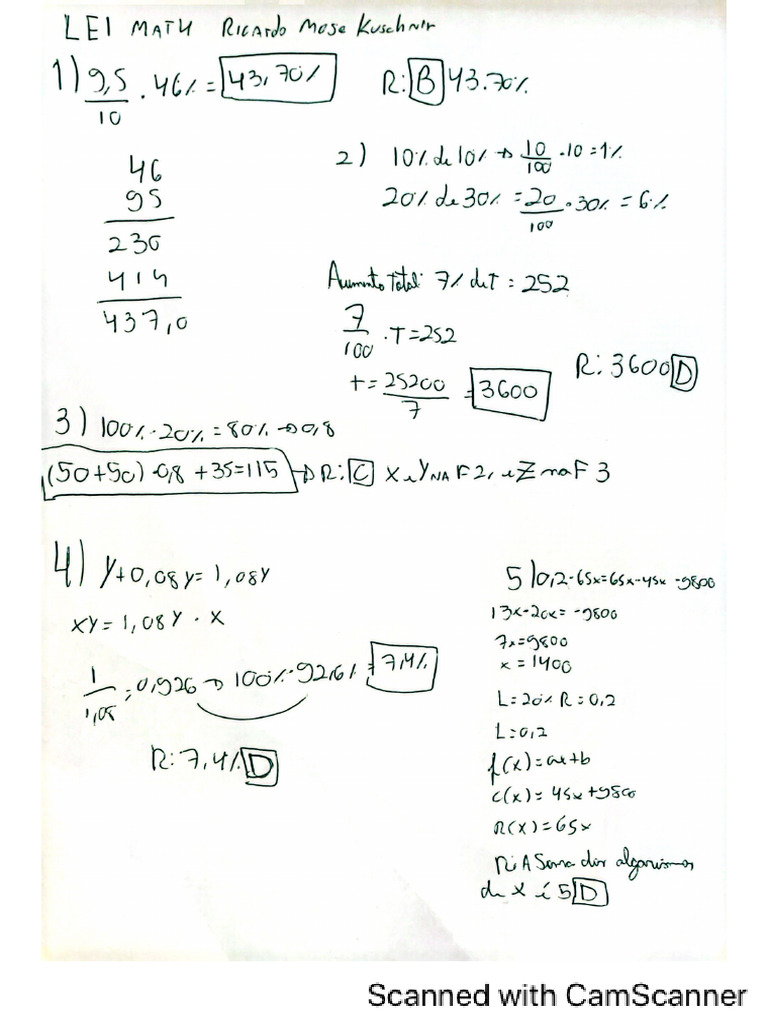 LEI MATH Ricardo Mose Kuschnir
1) 9,5/10 . 46% = 43,70% R: B 43.70%
46
95
230
414
437,0
2) 10% de 10% → 10/100 . 10 = 1%
20% de 30% = 20/100 . 30% = 6%
Aumento Total: 7% de T = 252
7/100 . T = 252
t = 25200/7 = 3600
R: 3600 D
3) 100% - 20% = 80% → 0,8
(50+50) . 0,8 + 35 = 115 → R: C X e Y NA F2, e Z na F3
4) Y+0,08Y = 1,08Y
XY = 1,08Y . X
1/1,08 = 0,926 → 100% - 92,6% = 7,4%
R: 7,4% D
5) 0,2 . 65x = 65x - 45x - 9800
13x - 20x = -9800
7x = 9800
x = 1400
L = 20% R = 0,2
L = 0,2
f(x) = ax + b
c(x) = 45x + 9800
R(x) = 65x
R: A Soma dos algarismos
de x é 5 D
Scanned with CamScanner